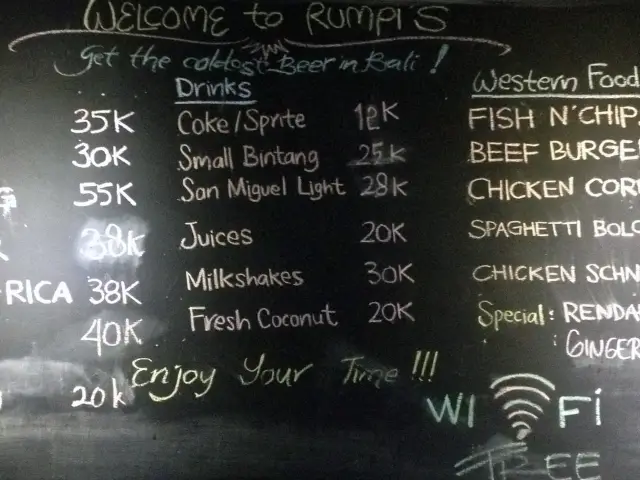 WELCOME to RUMPI'S
Get the coldest Beer in Bali !
Drinks
35K
30K
55K
38K
RICA 38K
40K
20k
Coke/Sprite 12K
Small Bintang 25K
San Miguel Light 28K
Juices 20K
Milkshakes 30K
Fresh Coconut 20K
Enjoy Your Time !!!
Western Food
FISH N'CHIP
BEEF BURGE
CHICKEN COR
SPAGHETTI BOLO
CHICKEN SCHN
Special: RENDA
: GINGER
WI FI
FREE